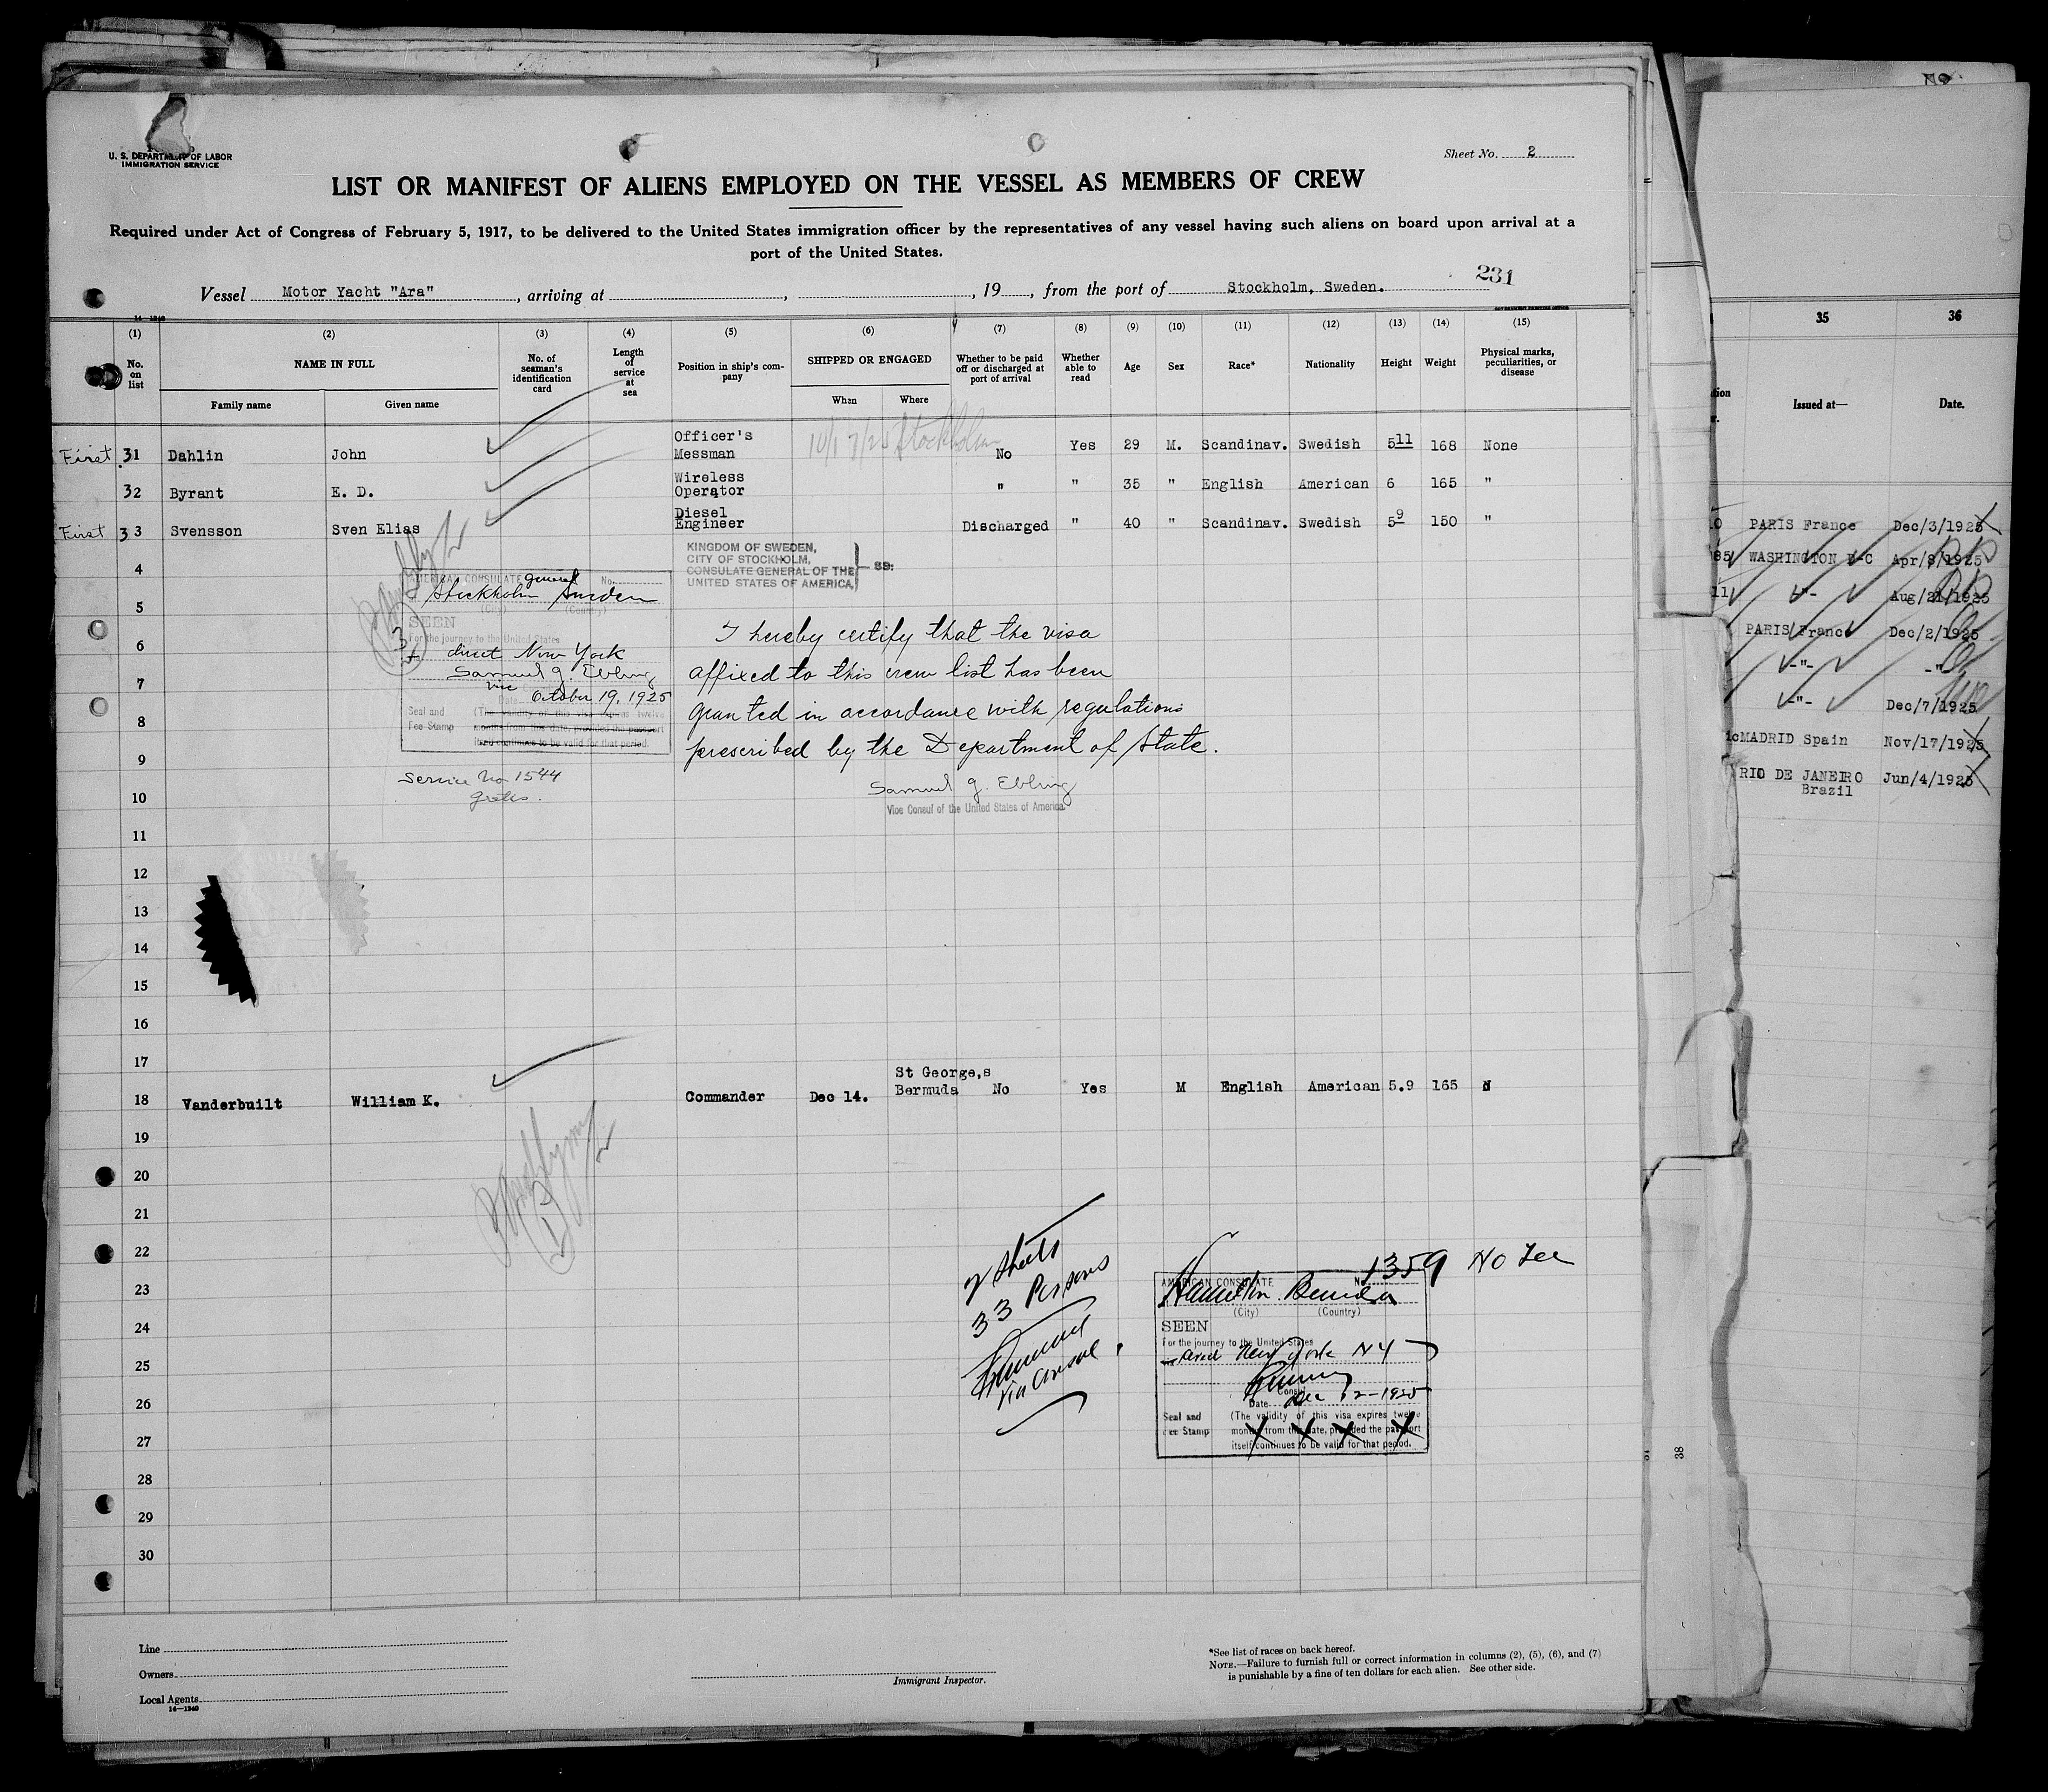 U. S. DEPARTMENT OF LABOR
IMMIGRATION SERVICE
Sheet No. 2
LIST OR MANIFEST OF ALIENS EMPLOYED ON THE VESSEL AS MEMBERS OF CREW
Required under Act of Congress of February 5, 1917, to be delivered to the United States immigration officer by the representatives of any vessel having such aliens on board upon arrival at a
port of the United States.
231
Vessel Motor Yacht "Ara", arriving at , , 19 , from the port of Stockholm, Sweden.
14—1240
(1) (2) (3) (4) (5) (6) (7) (8) (9) (10) (11) (12) (13) (14) (15)
No. on list NAME IN FULL No. of seaman's identification card Length of service at sea Position in ship's company SHIPPED OR ENGAGED Whether to be paid off or discharged at port of arrival Whether able to read Age Sex Race* Nationality Height Weight Physical marks, peculiarities, or disease
Family name Given name When Where
First 31 Dahlin John Officer's Messman 10/17/25 Stockholm No Yes 29 M. Scandinav. Swedish 5 11 168 None
32 Byrant E. D. Wireless Operator " " 35 " English American 6 165 "
First 33 Svensson Sven Elias Diesel Engineer Discharged " 40 " Scandinav. Swedish 5 9 150 "
KINGDOM OF SWEDEN,
CITY OF STOCKHOLM,
CONSULATE GENERAL OF THE
UNITED STATES OF AMERICA,
SS:
4
AMERICAN CONSULATE general No.
Stockholm Sweden
(City) (Country)
5
SEEN
For the journey to the United States
6
direct New York
Samuel G. Ebling
vice
7
October 19, 1925
Seal and Fee Stamp
(The validity of this visa expires twelve
months from this date, provided the passport
itself continues to be valid for that period.
I hereby certify that the visa
affixed to this crew list has been
granted in accordance with regulations
prescribed by the Department of State.
8
9
Service No 1544
gratis.
Samuel G. Ebling
Vice Consul of the United States of America.
10
11
12
13
14
15
16
17
18 Vanderbuilt William K. Commander Dec 14. St George,s Bermuda No Yes M English American 5.9 165
19
20
21
22
23
24
25
26
27
28
29
30
2 Sheets
33 Persons
Vice Consul
1359 No Fee
AMERICAN CONSULATE No.
Hamilton Bermuda
(City) (Country)
SEEN
For the journey to the United States
New York NY
Consul
Date Dec 12-1925
Seal and Fee Stamp
(The validity of this visa expires twelve
months from this date, provided the passport
itself continues to be valid for that period.
Line
Owners
Local Agents
14—1240
Immigrant Inspector.
*See list of races on back hereof.
NOTE.—Failure to furnish full or correct information in columns (2), (5), (6), and (7)
is punishable by a fine of ten dollars for each alien. See other side.
35 36
Issued at— Date.
PARIS France Dec/3/1925
WASHINGTON D-C Apr/8/1925
-"- Aug/21/1925
PARIS France Dec/2/1925
-"- -"-
-"- Dec/7/1925
MADRID Spain Nov/17/1925
RIO DE JANEIRO Jun/4/1925
Brazil
38